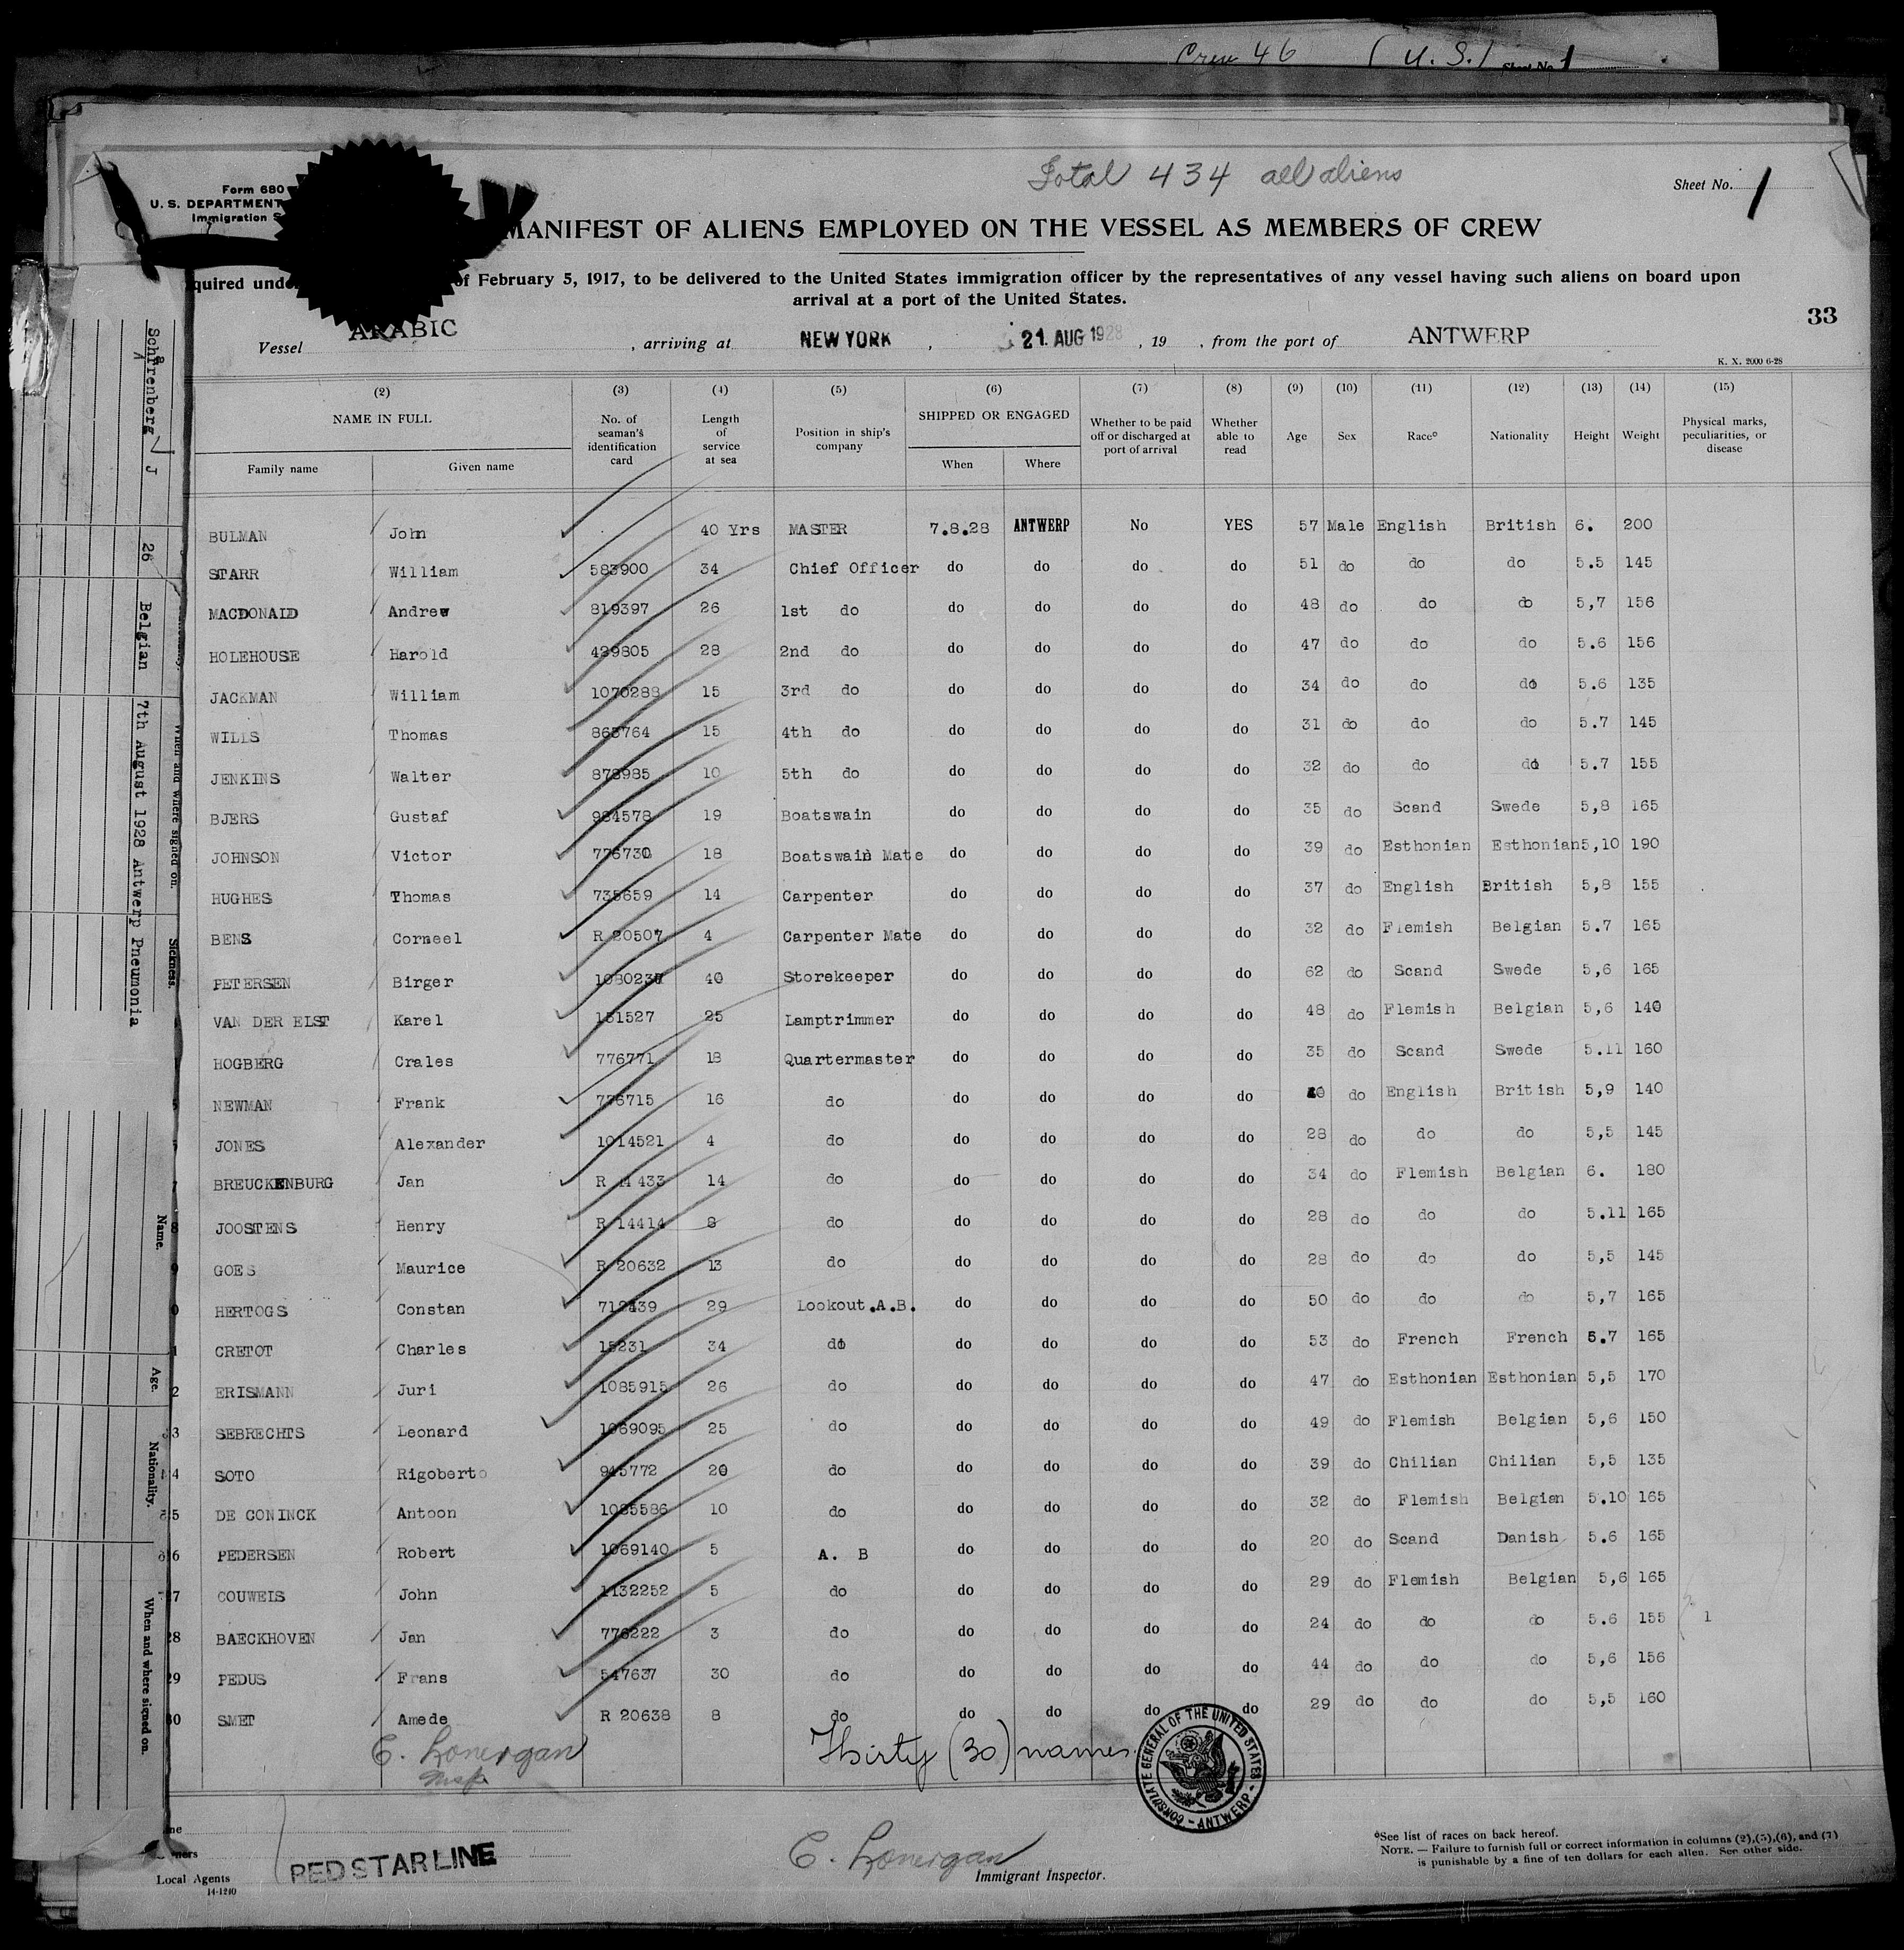 Crew 46 (U.S.) Sheet No. 1
Total 434 all aliens
Form 680
U. S. DEPARTMENT
Immigration S
Sheet No. 1
MANIFEST OF ALIENS EMPLOYED ON THE VESSEL AS MEMBERS OF CREW
quired unde of February 5, 1917, to be delivered to the United States immigration officer by the representatives of any vessel having such aliens on board upon
arrival at a port of the United States.
33
Vessel ARABIC, arriving at NEW YORK, 21. AUG 1928, 19 , from the port of ANTWERP
K. X. 2000 6-28
(2) (3) (4) (5) (6) (7) (8) (9) (10) (11) (12) (13) (14) (15)
NAME IN FULL
Family name Given name
No. of seaman's identification card
Length of service at sea
Position in ship's company
SHIPPED OR ENGAGED
When Where
Whether to be paid off or discharged at port of arrival
Whether able to read
Age Sex Race° Nationality Height Weight
Physical marks, peculiarities, or disease
BULMAN John 40 Yrs MASTER 7.8.28 ANTWERP No YES 57 Male English British 6. 200
STARR William 583900 34 Chief Officer do do do do 51 do do do 5.5 145
MACDONALD Andrew 819397 26 1st do do do do do 48 do do do 5,7 156
HOLEHOUSE Harold 429805 28 2nd do do do do do 47 do do do 5.6 156
JACKMAN William 1070288 15 3rd do do do do do 34 do do do 5.6 135
WILLS Thomas 15 4th do do do do do 31 do do do 5.7 145
JENKINS Walter 10 5th do do do do do 32 do do do 5.7 155
BJERS Gustaf 19 Boatswain do do do do 35 do Scand Swede 5,8 165
JOHNSON Victor 776730 18 Boatswain Mate do do do do 39 do Esthonian Esthonian 5,10 190
HUGHES Thomas 735659 14 Carpenter do do do do 37 do English British 5,8 155
BENS Corneel R 20507 4 Carpenter Mate do do do do 32 do Flemish Belgian 5.7 165
PETERSEN Birger 40 Storekeeper do do do do 62 do Scand Swede 5,6 165
VAN DER ELST Karel 151527 25 Lamptrimmer do do do do 48 do Flemish Belgian 5,6 140
HOGBERG Crales 776771 18 Quartermaster do do do do 35 do Scand Swede 5.11 160
NEWMAN Frank 776715 16 do do do do do do English British 5,9 140
JONES Alexander 1014521 4 do do do do do 28 do do do 5,5 145
BREUCKENBURG Jan R 14433 14 do do do do do 34 do Flemish Belgian 6. 180
JOOSTENS Henry R 14414 8 do do do do do 28 do do do 5.11 165
GOES Maurice R 20632 13 do do do do do 28 do do do 5,5 145
HERTOGS Constan 29 Lookout.A.B. do do do do 50 do do do 5,7 165
CRETOT Charles 15231 34 do do do do do 53 do French French 5.7 165
ERISMANN Juri 1085915 26 do do do do do 47 do Esthonian Esthonian 5,5 170
SEBRECHTS Leonard 1069095 25 do do do do do 49 do Flemish Belgian 5,6 150
SOTO Rigoberto 945772 20 do do do do do 39 do Chilian Chilian 5,5 135
DE CONINCK Antoon 1085586 10 do do do do do 32 do Flemish Belgian 5.10 165
PEDERSEN Robert 1069140 5 A. B do do do do 20 do Scand Danish 5.6 165
COUWELS John 1132252 5 do do do do do 29 do Flemish Belgian 5,6 165
BAECKHOVEN Jan 776222 3 do do do do do 24 do do do 5.6 155 1
PEDUS Frans 547637 30 do do do do do 44 do do do 5,6 156
SMET Amede R 20638 8 do do do do do 29 do do do 5,5 160
E. Lonergan
Insp.
Thirty (30) names.
CONSULATE GENERAL OF THE UNITED STATES - ANTWERP -
ners
RED STAR LINE
Local Agents
14-1240
E. Lonergan
Immigrant Inspector.
°See list of races on back hereof.
NOTE. — Failure to furnish full or correct information in columns (2),(5),(6), and (7)
is punishable by a fine of ten dollars for each alien. See other side.
J 26 Belgian 7th August 1928 Antwerp Pneumonia
When and where signed on. Sickness.
Name. Age. Nationality. When and where signed on.